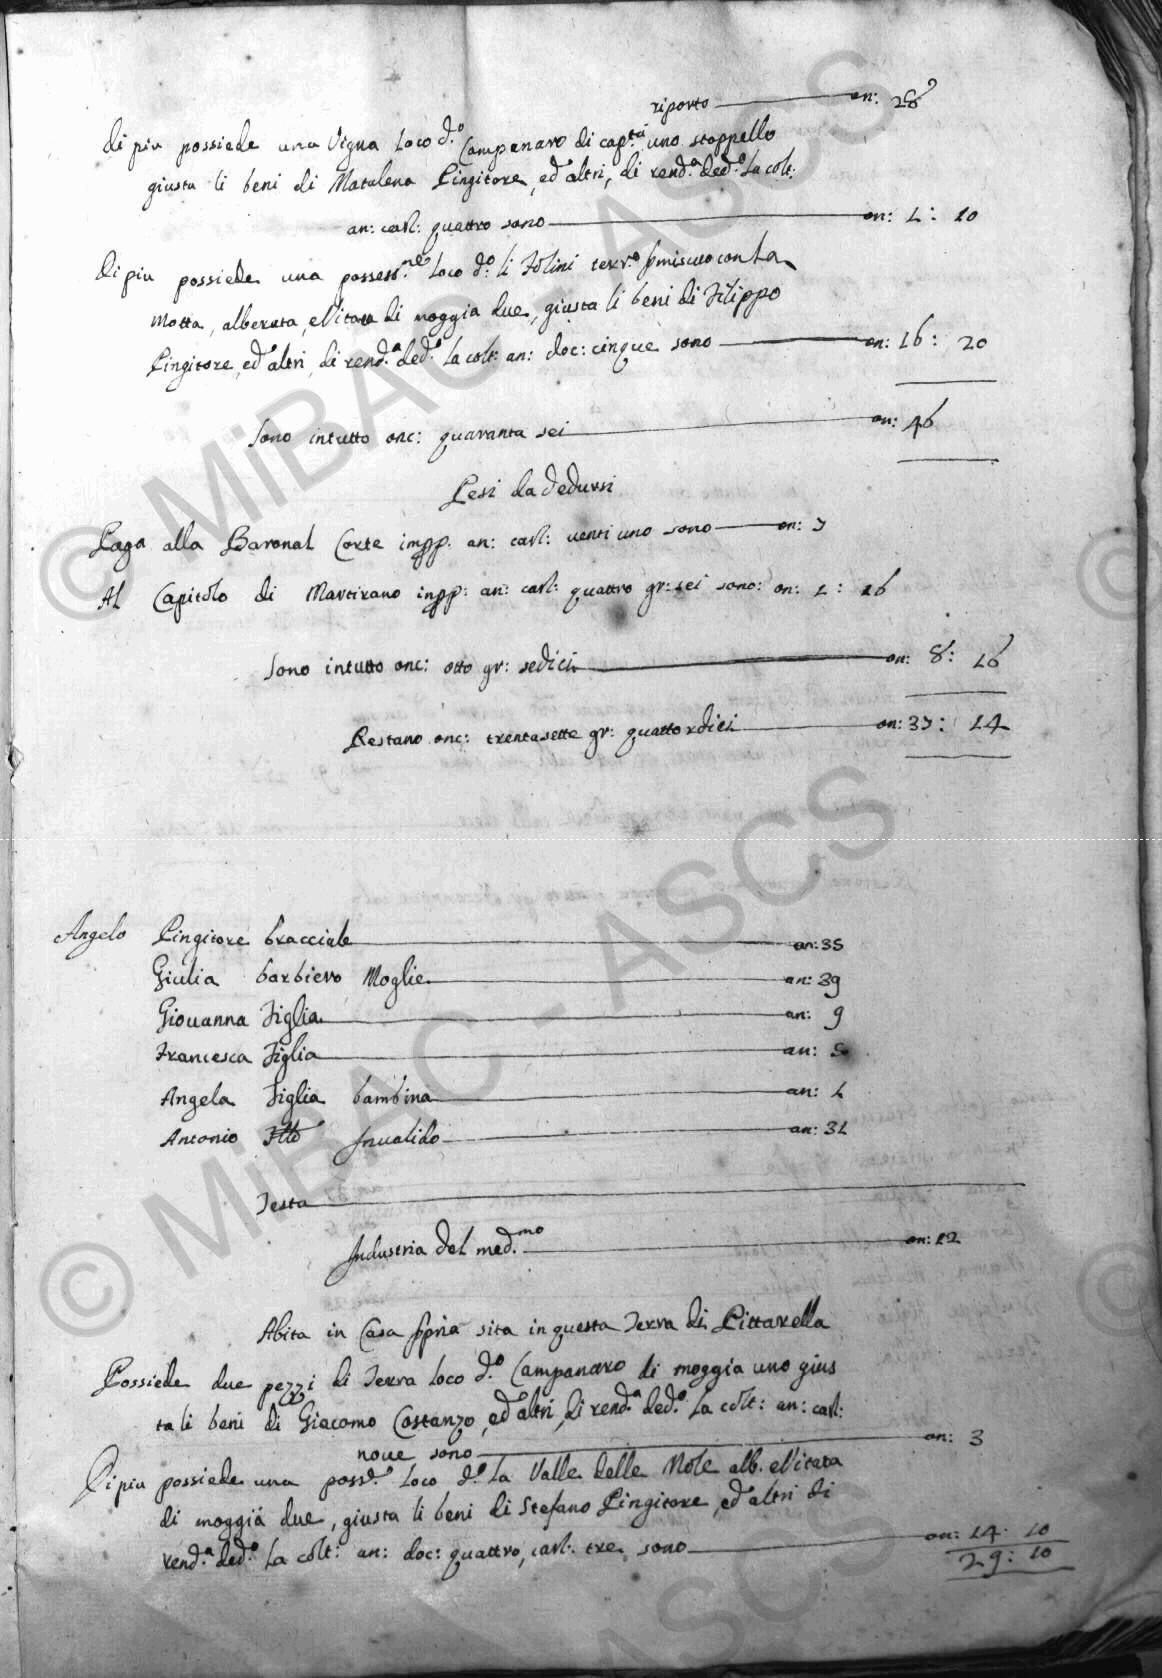 riporto — on: 28
di piu possiede una Vigna loco d.º Campanaro di cap.tà uno stoppello
giusta li beni di Matalena Pingitore, ed altri, di rend.ª ded.º la colt:
an: carl: quattro sono — on: 1: 10
Di piu possiede una possess.ne loco d.º li terr.º promiscuo con La
Motta, alberata, e Vitata di moggia due, giusta li beni di Filippo
Pingitore, ed altri, di rend.ª ded.º la colt: an: doc: cinque sono — on: 16: 20
Sono intutto onc: quaranta sei — on: 46
Pesi da dedursi
Paga alla Baronal Corte an: carl: venti uno sono — on: 7
Al Capitolo di Martirano an: carl: quattro gr: sei sono: on: 1: 16
Sono intutto onc: otto gr: sedici — on: 8: 16
Restano onc: trentasette gr: quattordici — on: 37: 14
Angelo Pingitore bracciale — an: 35
Giulia barbiero Moglie — an: 39
Giovanna Figlia — an: 9
Francesca Figlia — an: 5
Angela Figlia bambina — an: 1
Antonio Invalido — an: 31
Testa
Industria del med.mo — on: 12
Abita in Casa ppria sita in questa Terra di Pittarella
Possiede due pezzi di Terra loco d.º Campanaro di moggia uno gius
ta li beni di Giacomo Costanzo, ed altri, di rend.ª ded.º la colt: an: carl:
nove sono — on: 3
Di piu possiede una poss.e loco d.º la Valle delle Mole alb. e Vitata
di moggia due, giusta li beni di Stefano Pingitore, ed altri di
rend.ª ded.º la colt: an: doc: quattro, carl: tre sono — on: 14: 10
29: 10
© MiBAC - ASCS
© MiBAC - ASCS